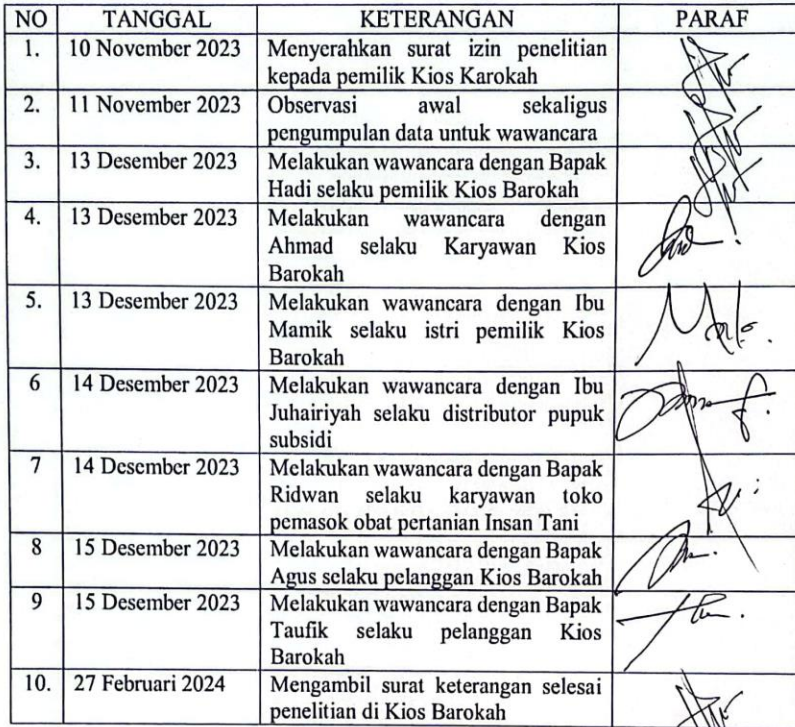 NO TANGGAL KETERANGAN PARAF
1. 10 November 2023 Menyerahkan surat izin penelitian
kepada pemilik Kios Karokah
2. 11 November 2023 Observasi awal sekaligus
pengumpulan data untuk wawancara
3. 13 Desember 2023 Melakukan wawancara dengan Bapak
Hadi selaku pemilik Kios Barokah
4. 13 Desember 2023 Melakukan wawancara dengan
Ahmad selaku Karyawan Kios
Barokah
5. 13 Desember 2023 Melakukan wawancara dengan Ibu
Mamik selaku istri pemilik Kios
Barokah
6 14 Desember 2023 Melakukan wawancara dengan Ibu
Juhairiyah selaku distributor pupuk
subsidi
7 14 Desember 2023 Melakukan wawancara dengan Bapak
Ridwan selaku karyawan toko
pemasok obat pertanian Insan Tani
8 15 Desember 2023 Melakukan wawancara dengan Bapak
Agus selaku pelanggan Kios Barokah
9 15 Desember 2023 Melakukan wawancara dengan Bapak
Taufik selaku pelanggan Kios
Barokah
10. 27 Februari 2024 Mengambil surat keterangan selesai
penelitian di Kios Barokah